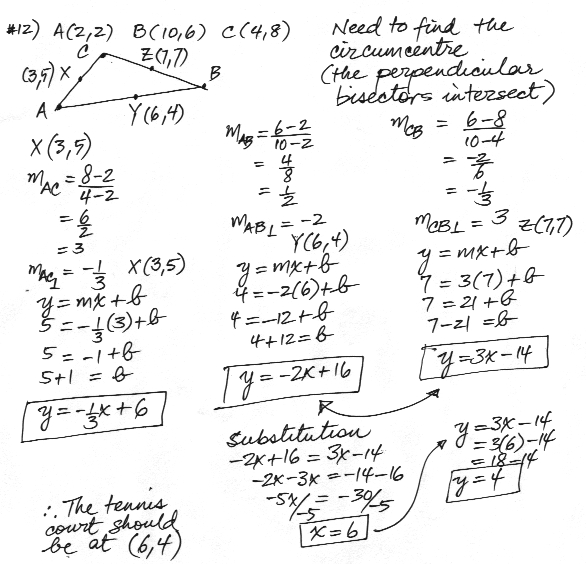 #12) A(2,2) B(10,6) C(4,8)
Need to find the
circumcentre
(the perpendicular
bisectors intersect)
C
Z(7,7)
(3,5) X
B
A
Y(6,4)
X(3,5)
mAC = 8-2
4-2
= 6
2
= 3
mAC⊥ = -1/3 X(3,5)
y = mx+b
5 = -1/3(3)+b
5 = -1+b
5+1 = b
y = -1/3x+6
mAB = 6-2
10-2
= 4
8
= 1
2
mAB⊥ = -2
Y(6,4)
y = mx+b
4 = -2(6)+b
4 = -12+b
4+12 = b
y = -2x+16
mCB = 6-8
10-4
= -2
6
= -1/3
mCB⊥ = 3 Z(7,7)
y = mx+b
7 = 3(7)+b
7 = 21+b
7-21 = b
y = 3x-14
Substitution
-2x+16 = 3x-14
-2x-3x = -14-16
-5x/-5 = -30/-5
x = 6
y = 3x-14
= 3(6)-14
= 18-14
y = 4
∴ The tennis
court should
be at (6,4)